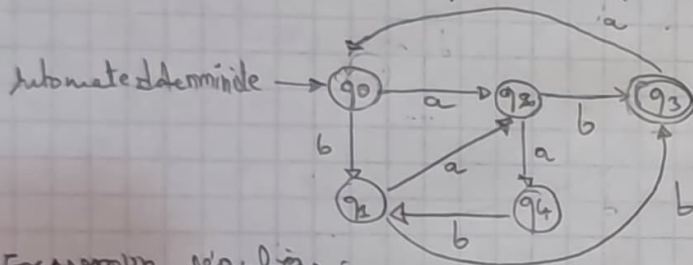 a
Automate déterministe
q0 a q2 b q3
b a a b
q1 b q4